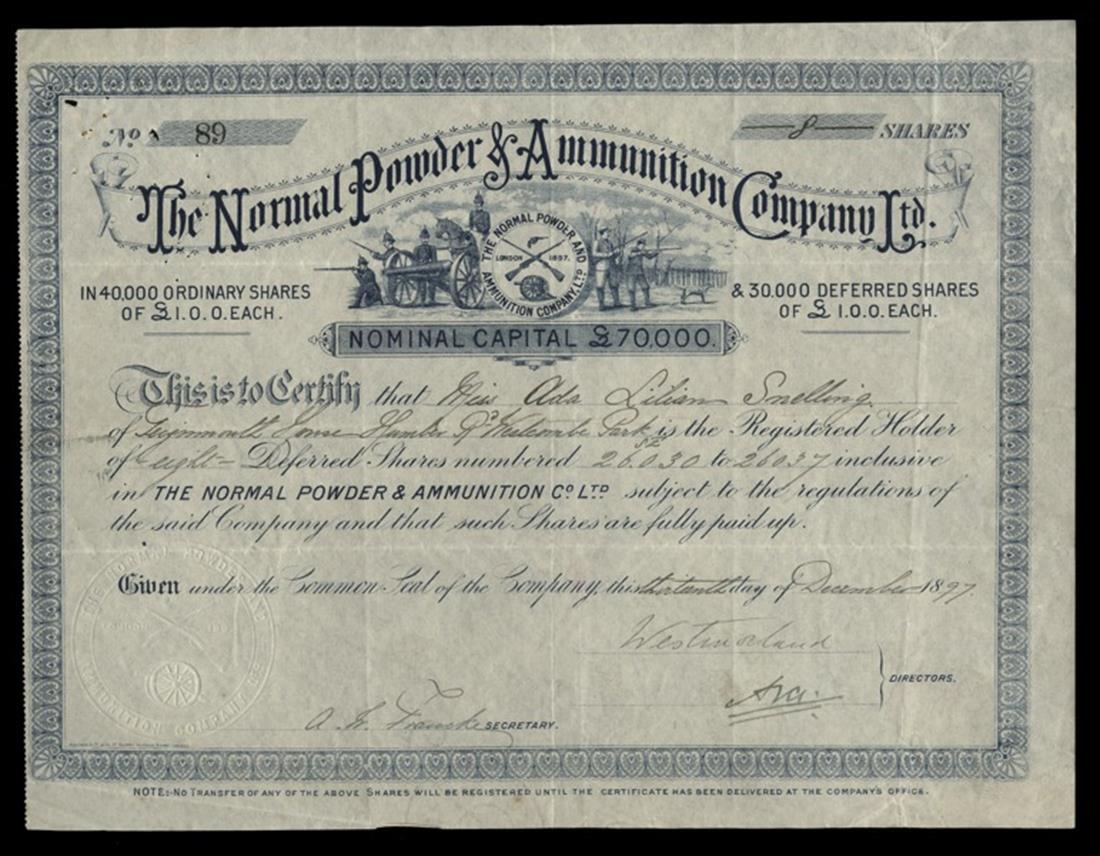 No 89
8 SHARES
The Normal Powder & Ammunition Company Ltd.
THE NORMAL POWDER AND
LONDON 1897.
AMMUNITION COMPANY LTD
IN 40,000 ORDINARY SHARES
OF £1.0.0. EACH.
& 30.000 DEFERRED SHARES
OF £1.0.0. EACH.
NOMINAL CAPITAL £70,000.
This is to Certify that Miss Ada Lilian Snelling
of Teignmouth House Humber Rd Westcombe Park is the Registered Holder
of eight Deferred Shares numbered 26030 to 26037 inclusive
in THE NORMAL POWDER & AMMUNITION Co. LTD. subject to the regulations of
the said Company and that such Shares are fully paid up.
Given under the Common Seal of the Company, this thirteenth day of December 1897
Westmorland
DIRECTORS.
SECRETARY.
THE NORMAL POWDER AND
AMMUNITION COMPANY
NOTE:- NO TRANSFER OF ANY OF THE ABOVE SHARES WILL BE REGISTERED UNTIL THE CERTIFICATE HAS BEEN DELIVERED AT THE COMPANY'S OFFICE.